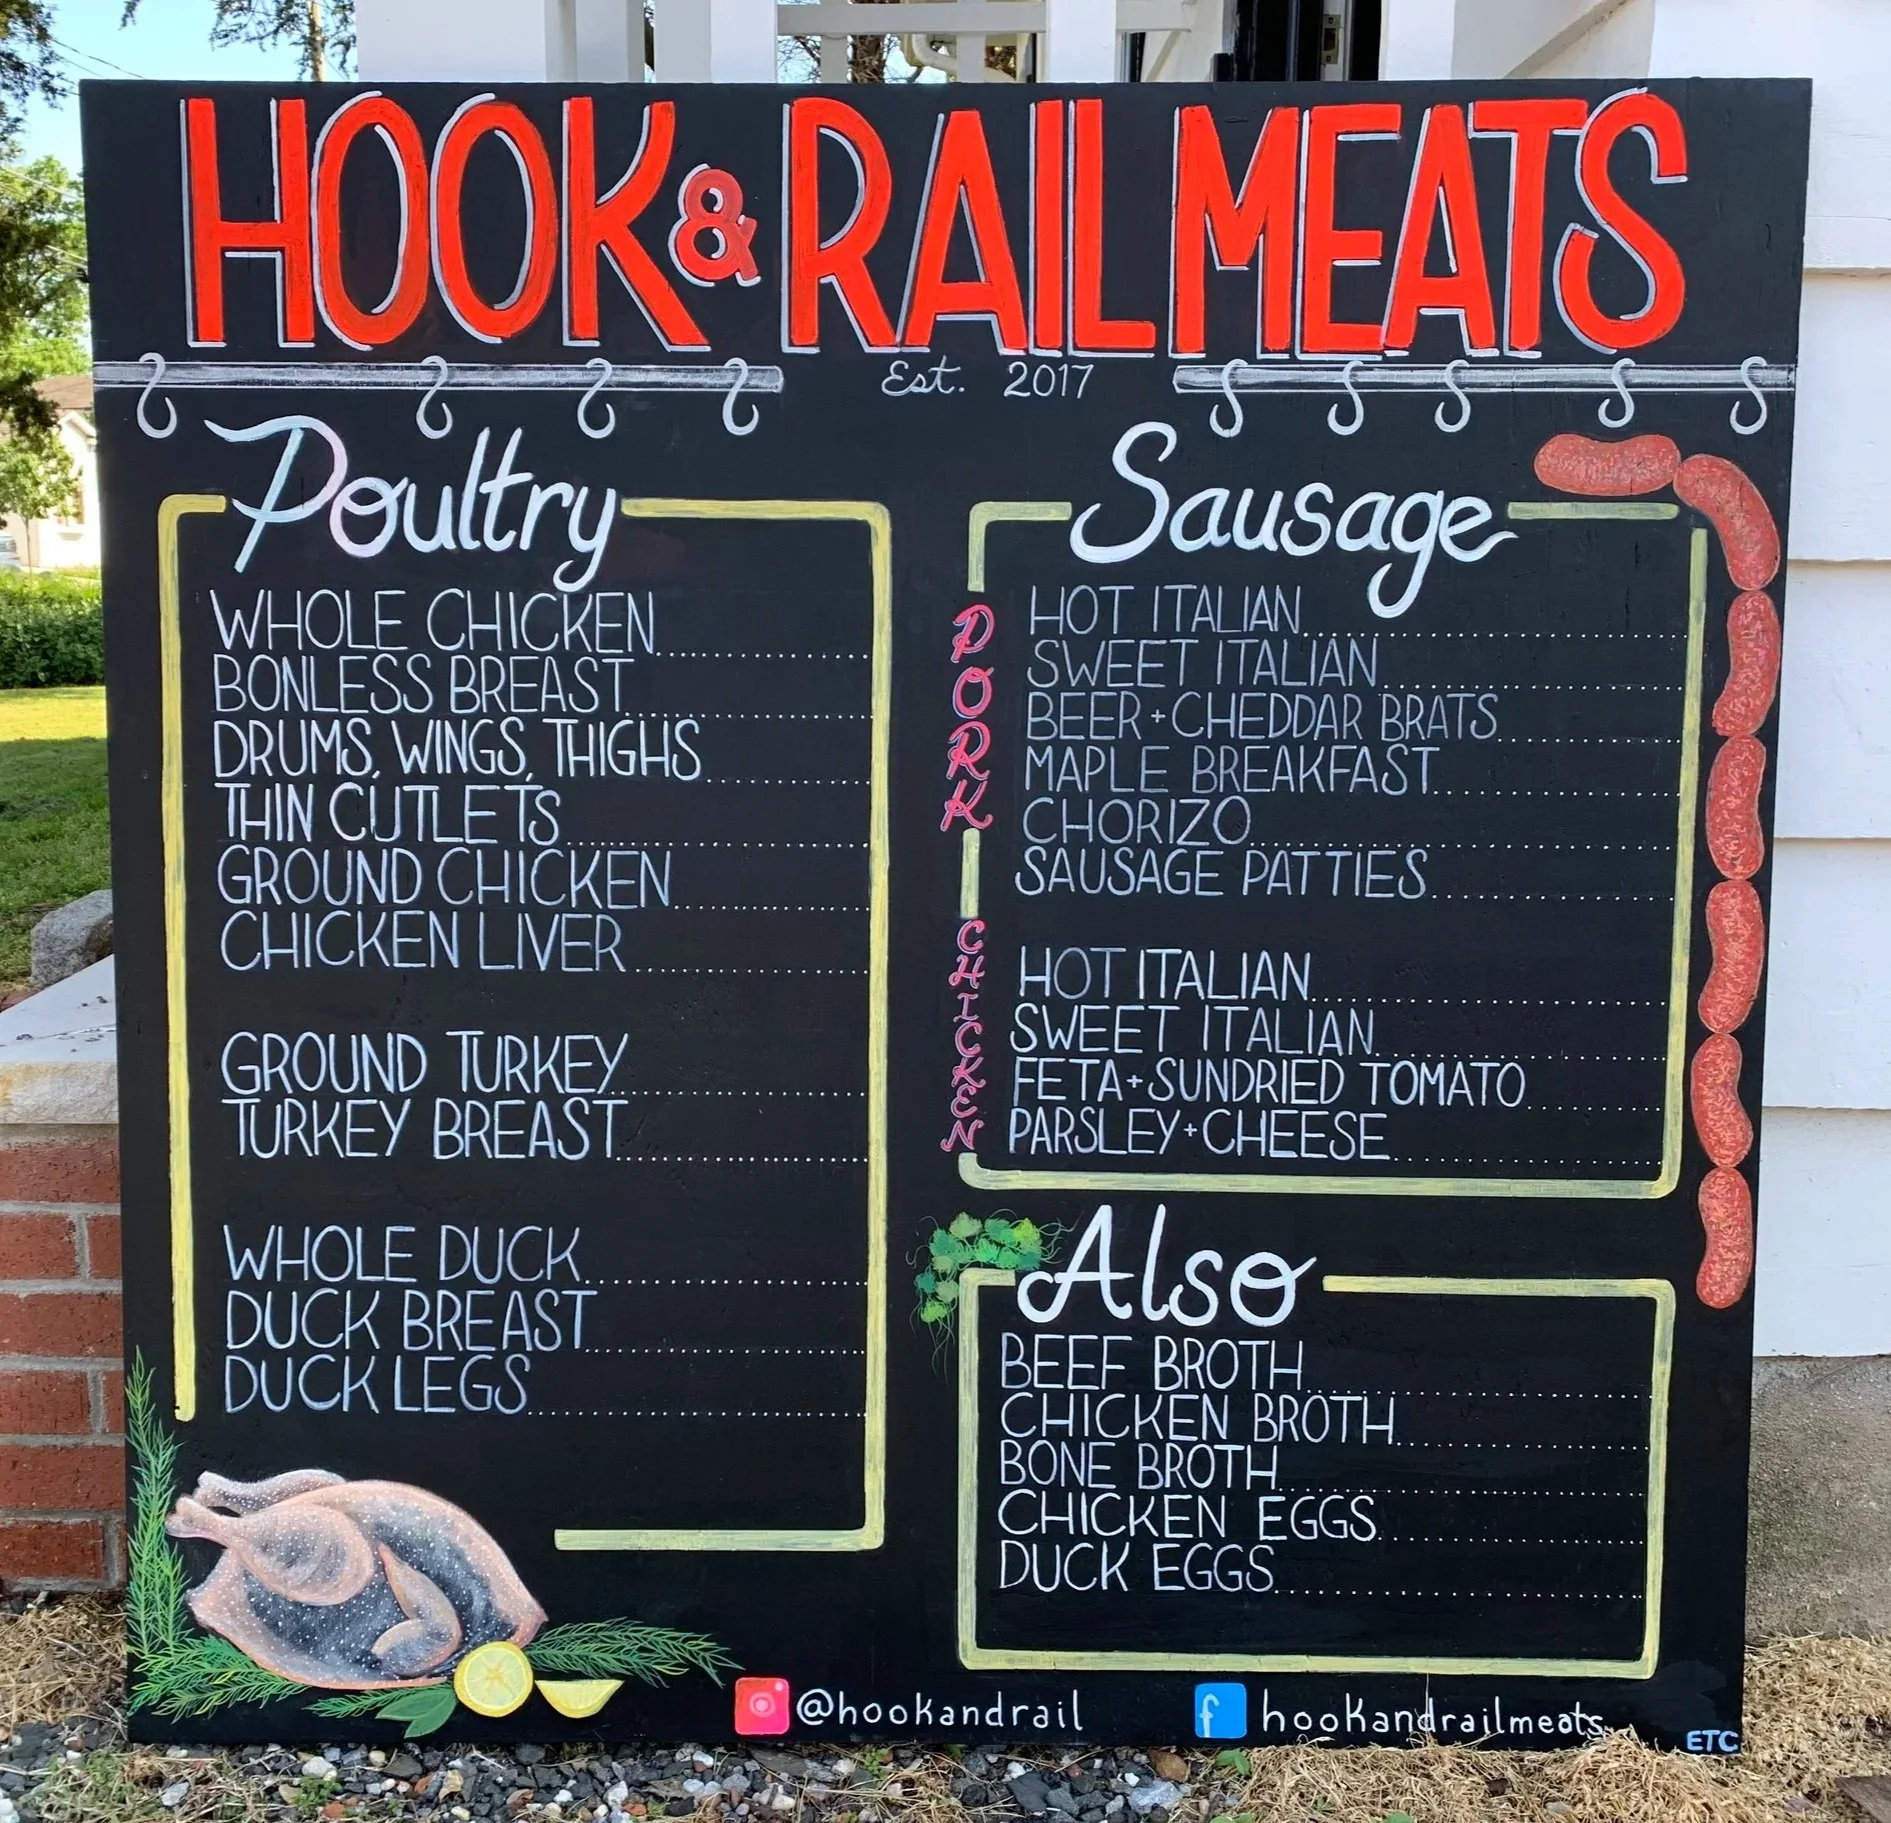 HOOK & RAIL MEATS
Est. 2017
Poultry
WHOLE CHICKEN
BONLESS BREAST
DRUMS, WINGS, THIGHS
THIN CUTLETS
GROUND CHICKEN
CHICKEN LIVER
GROUND TURKEY
TURKEY BREAST
WHOLE DUCK
DUCK BREAST
DUCK LEGS
Sausage
PORK
HOT ITALIAN
SWEET ITALIAN
BEER + CHEDDAR BRATS
MAPLE BREAKFAST
CHORIZO
SAUSAGE PATTIES
CHICKEN
HOT ITALIAN
SWEET ITALIAN
FETA + SUNDRIED TOMATO
PARSLEY + CHEESE
Also
BEEF BROTH
CHICKEN BROTH
BONE BROTH
CHICKEN EGGS
DUCK EGGS
@hookandrail
f hookandrailmeats
ETC